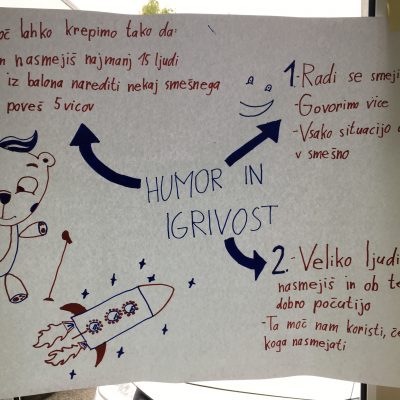 lahko krepimo tako da:
nasmejiš najmanj 15 ljudi
iz balona narediti nekaj smešnega
poveš 5 vicov
HUMOR IN
IGRIVOST
1. Radi se
- Govorimo vice
- Vsako situacijo
v smešno
2. - Veliko ljudi
nasmejiš in ob
dobro počutijo
- Ta moč nam koristi,
koga nasmejati